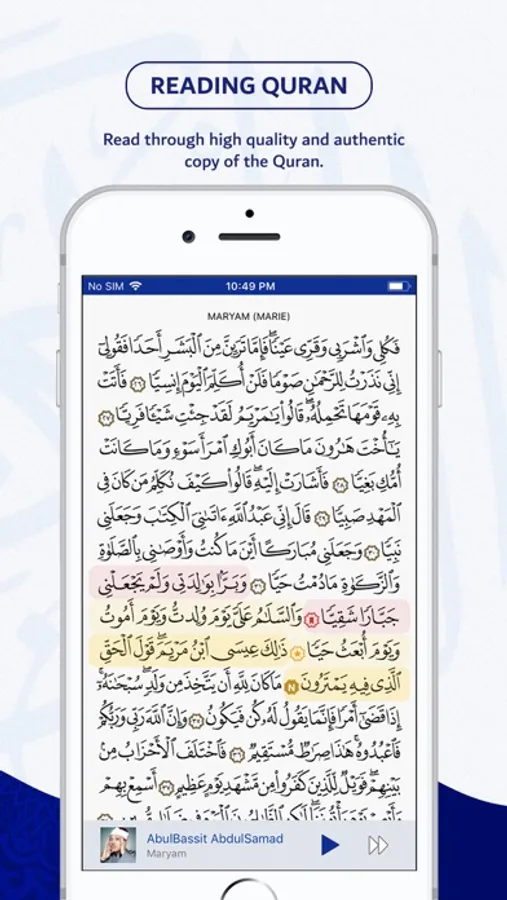 READING QURAN
Read through high quality and authentic
copy of the Quran.
No SIM 10:49 PM
MARYAM (MARIE)
فَكُلِي وَٱشْرَبِي وَقَرِّي عَيْنًاۖ فَإِمَّا تَرَيِنَّ مِنَ ٱلْبَشَرِ أَحَدًا فَقُولِيٓ
إِنِّي نَذَرْتُ لِلرَّحْمَٰنِ صَوْمًا فَلَنْ أُكَلِّمَ ٱلْيَوْمَ إِنسِيًّا ٢٦ فَأَتَتْ
بِهِۦ قَوْمَهَا تَحْمِلُهُۥۖ قَالُوا۟ يَٰمَرْيَمُ لَقَدْ جِئْتِ شَيْـًٔا فَرِيًّا ٢٧
يَٰٓأُخْتَ هَٰرُونَ مَا كَانَ أَبُوكِ ٱمْرَأَ سَوْءٍ وَمَا كَانَتْ
أُمُّكِ بَغِيًّا ٢٨ فَأَشَارَتْ إِلَيْهِۖ قَالُوا۟ كَيْفَ نُكَلِّمُ مَن كَانَ فِي
ٱلْمَهْدِ صَبِيًّا ٢٩ قَالَ إِنِّي عَبْدُ ٱللَّهِ ءَاتَىٰنِيَ ٱلْكِتَٰبَ وَجَعَلَنِي
نَبِيًّا ٣٠ وَجَعَلَنِي مُبَارَكًا أَيْنَ مَا كُنتُ وَأَوْصَٰنِي بِٱلصَّلَوٰةِ
وَٱلزَّكَوٰةِ مَا دُمْتُ حَيًّا ٣١ وَبَرًّۢا بِوَٰلِدَتِي وَلَمْ يَجْعَلْنِي
جَبَّارًا شَقِيًّا وَٱلسَّلَٰمُ عَلَيَّ يَوْمَ وُلِدتُّ وَيَوْمَ أَمُوتُ
وَيَوْمَ أُبْعَثُ حَيًّا ذَٰلِكَ عِيسَى ٱبْنُ مَرْيَمَۖ قَوْلَ ٱلْحَقِّ
ٱلَّذِي فِيهِ يَمْتَرُونَ N مَا كَانَ لِلَّهِ أَن يَتَّخِذَ مِن وَلَدٍۖ سُبْحَٰنَهُۥٓۚ
إِذَا قَضَىٰٓ أَمْرًا فَإِنَّمَا يَقُولُ لَهُۥ كُن فَيَكُونُ ٣٥ وَإِنَّ ٱللَّهَ رَبِّي وَرَبُّكُمْ
فَٱعْبُدُوهُۚ هَٰذَا صِرَٰطٌ مُّسْتَقِيمٌ ٣٦ فَٱخْتَلَفَ ٱلْأَحْزَابُ مِنۢ
بَيْنِهِمْۖ فَوَيْلٌ لِّلَّذِينَ كَفَرُوا۟ مِن مَّشْهَدِ يَوْمٍ عَظِيمٍ ٣٧ أَسْمِعْ بِهِمْ
AbulBassit AbdulSamad
Maryam